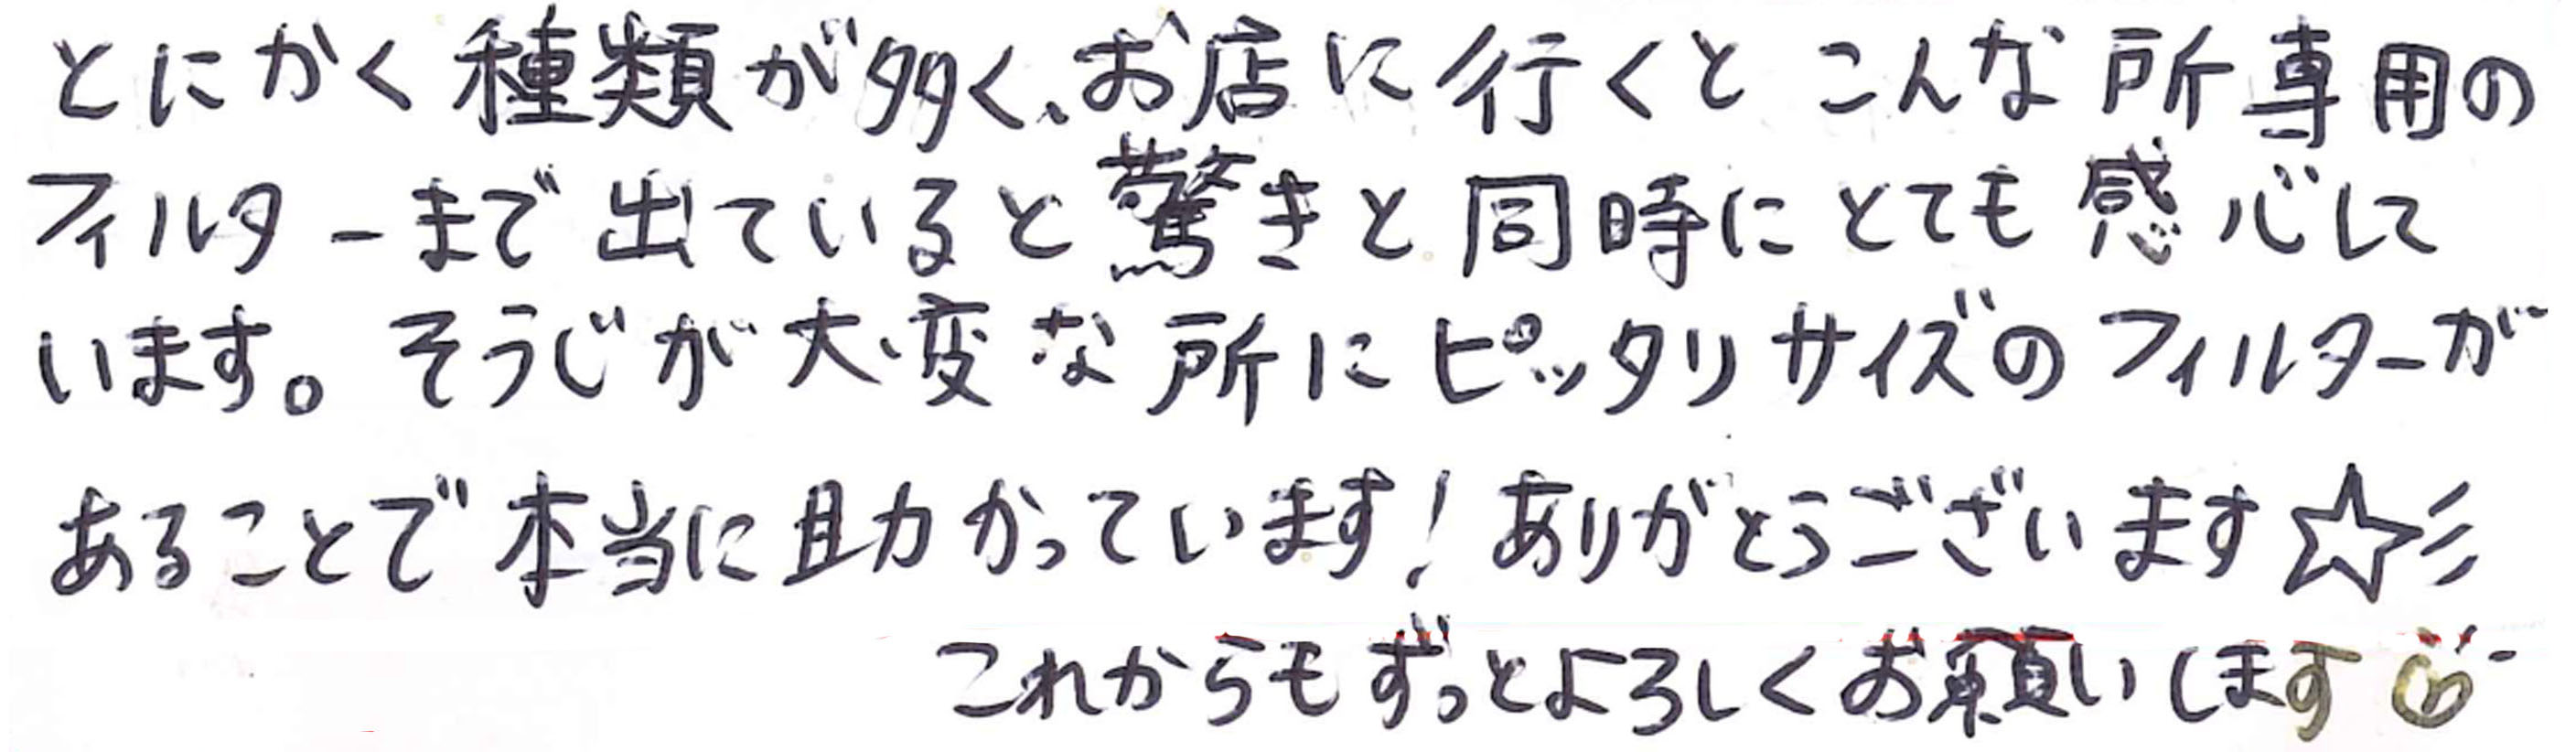 とにかく種類が多く、お店に行くとこんな所専用の
フィルターまで出ていると驚きと同時にとても感心して
います。そうじが大変な所にピッタリサイズのフィルターが
あることで本当に助かっています!ありがとうございます☆彡
これからもずっとよろしくお願いします